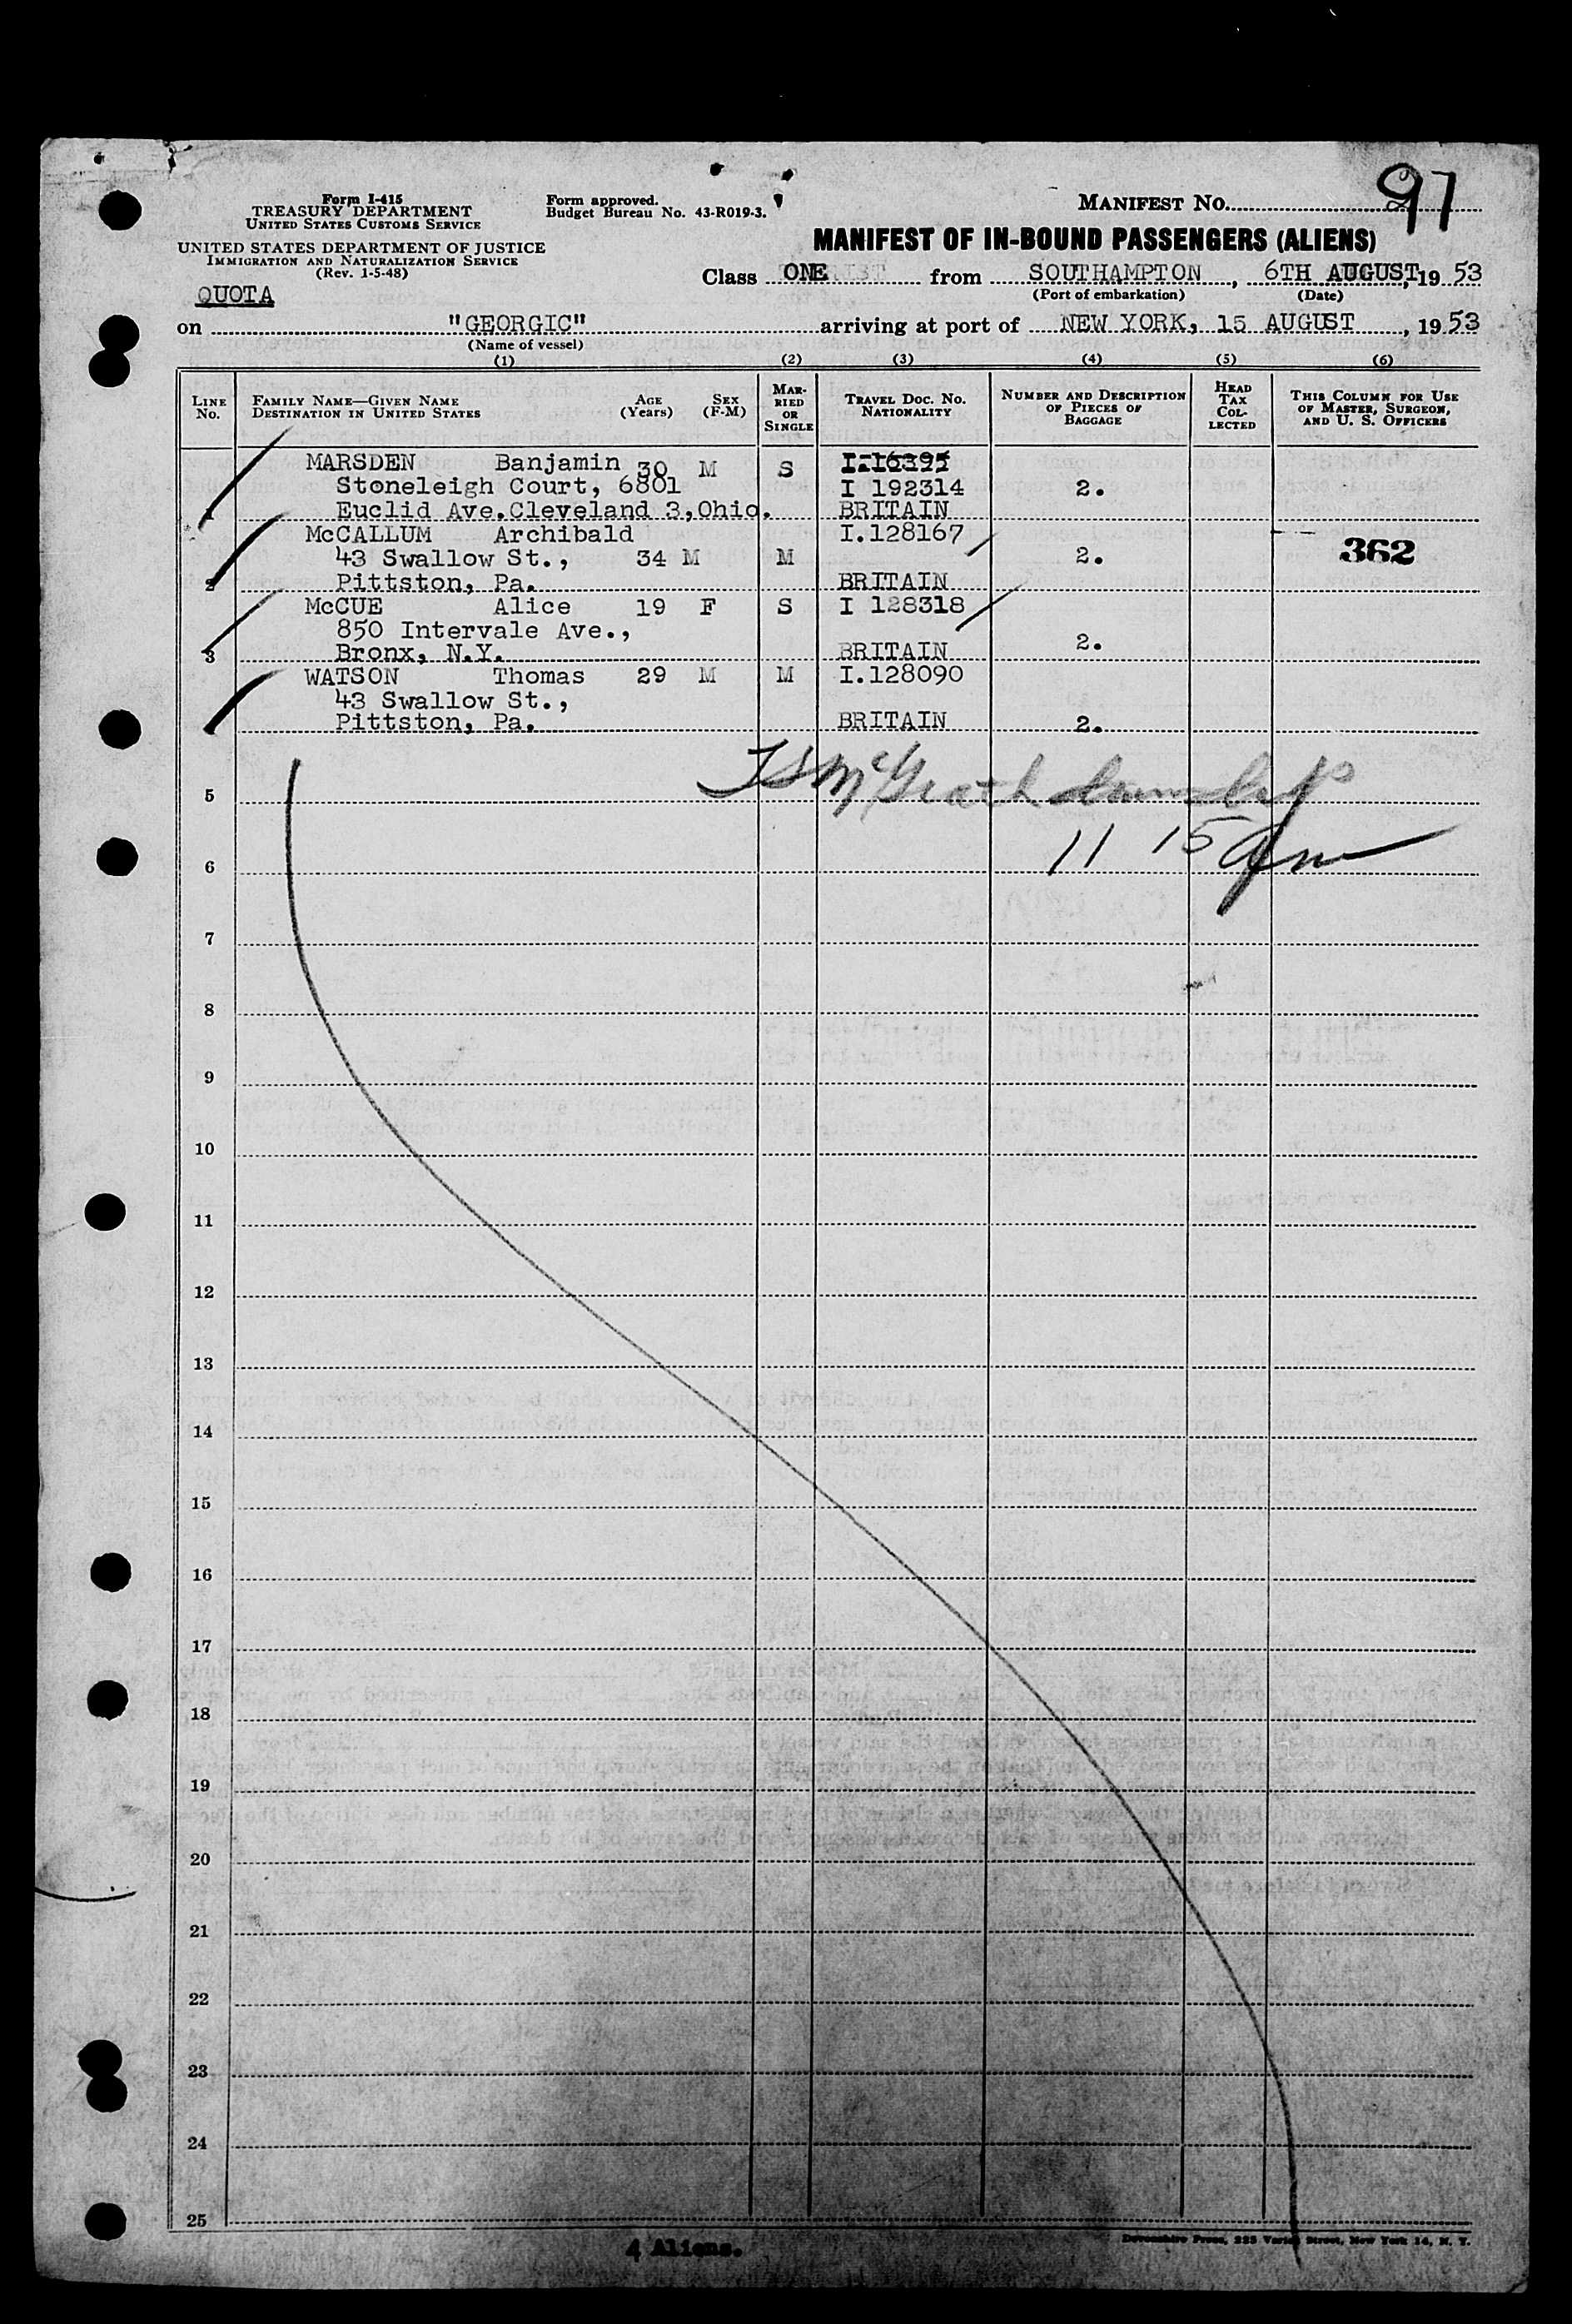 97
Form I-415
TREASURY DEPARTMENT
UNITED STATES CUSTOMS SERVICE
Form approved.
Budget Bureau No. 43-R019-3.
MANIFEST NO.
UNITED STATES DEPARTMENT OF JUSTICE
IMMIGRATION AND NATURALIZATION SERVICE
(Rev. 1-5-48)
MANIFEST OF IN-BOUND PASSENGERS (ALIENS)
Class ONE from SOUTHAMPTON, 6TH AUGUST, 19 53
(Port of embarkation) (Date)
QUOTA
on "GEORGIC" arriving at port of NEW YORK, 15 AUGUST, 19 53
(Name of vessel)
(1) (2) (3) (4) (5) (6)
LINE NO. FAMILY NAME—GIVEN NAME DESTINATION IN UNITED STATES AGE (YEARS) SEX (F-M) MARRIED OR SINGLE TRAVEL DOC. NO. NATIONALITY NUMBER AND DESCRIPTION OF PIECES OF BAGGAGE HEAD TAX COLLECTED THIS COLUMN FOR USE OF MASTER, SURGEON, AND U. S. OFFICERS
MARSDEN Banjamin 30 M S I-16395
Stoneleigh Court, 6801 I 192314 2.
Euclid Ave.Cleveland 3,Ohio. BRITAIN
McCALLUM Archibald I.128167
43 Swallow St., 34 M M 2. 362
2 Pittston, Pa. BRITAIN
McCUE Alice 19 F S I 128318
850 Intervale Ave., 2.
3 Bronx, N.Y. BRITAIN
WATSON Thomas 29 M M I.128090
43 Swallow St.,
Pittston, Pa. BRITAIN 2.
McGrath
5
11 15 am
6
7
8
9
10
11
12
13
14
15
16
17
18
19
20
21
22
23
24
25
4 Aliens.
Devonshire Press, 225 Varick Street, New York 14, N. Y.